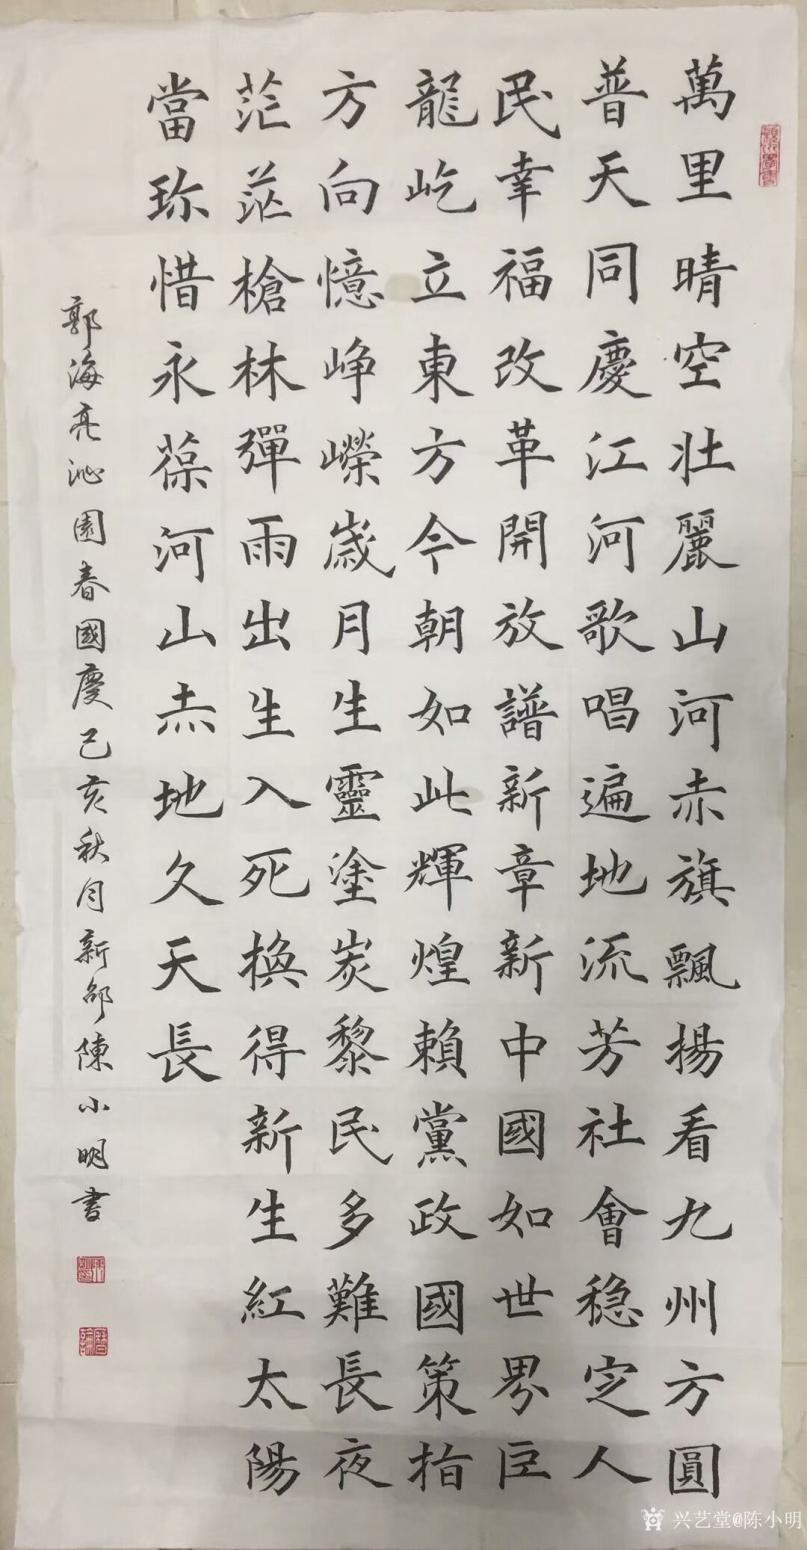 萬里晴空壯麗山河赤旗飄揚看九州方圓
普天同慶江河歌唱遍地流芳社會穏定人
民幸福改革開放譜新章新中國如世界巨
龍屹立東方今朝如此輝煌賴黨政國策指
方向憶崢嶸嵗月生靈塗炭黎民多難長夜
茫茫槍林彈雨出生入死換得新生紅太陽
當珎惜永葆河山杰地久天長
郭海亮沁園春國慶己亥秋月新邵陳小明書
兴艺堂@陈小明